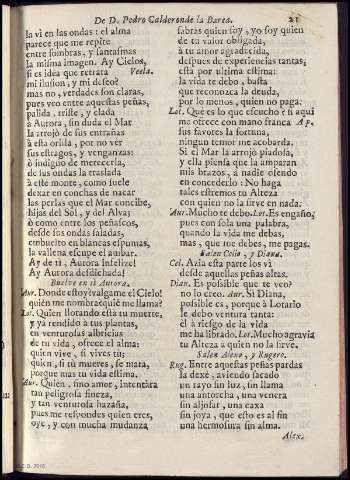 De D. Pedro Calderon de la Barca.
21
la vì en las ondas: el alma
parece que me repite
entre sombras, y fantasmas
la misma imagen. Ay Cielos,
si es idèa que retrata Veela.
mi ilusion, y mi deseo?
mas no, verdades son claras,
pues veo entre aquestas peñas,
palida, triste, y elada
à Aurora, sin duda el Mar
la arrojò de sus entrañas
à esta orilla, por no ver
sus estragos, y venganzas:
ò indigno de merecerla,
de sus ondas la traslada
à este monte, como suele
dexar en conchas de nacar
las perlas que el Mar concibe,
hijas del Sol, y del Alva;
ò como entre los peñascos,
desde sus ondas saladas,
embuelto en blancas espumas,
la vallena escupe el ambar.
Ay de tì, Aurora infelìze!
Ay Aurora desdichada!
Buelve en sì Aurora.
Aur. Donde estoy? valgame el Cielo!
quièn me nombra? quièn me llama?
Lot. Quien llorando està tu muerte,
y ya rendido à tus plantas,
en venturosas albricias
de tu vida, ofrece el alma:
quien vive, si vives tù;
quien, si tù mueres, se mata,
porque mas tu vida estima.
Aur. Quien, sino amor, intentàra
tan peligrosa fineza,
y tan venturosa hazaña,
pues me respondes quien eres,
oye, y con mucha mudanza
sabràs quien soy, yo soy quien
de tu valor obligada,
à tu amor agradecida,
despues de experiencias tantas,
està por ultima estima:
la vida te debo, basta
que reconozca la deuda,
por lo menos, quien no paga.
Lot. Què es lo que escucho? si aqui
me ofrece con mano franca Ap.
sus favores la fortuna,
ningun temor me acobarda.
Si el Mar la arrojò piadosa,
y ella piensa que la amparan
mis brazos, à nadie ofendo
en concederlo: No haga
tales estremos tu Alteza
con quien no la sirve en nada.
Aur. Mucho te debo. Lot. Es engaño,
pues con sola una palabra,
quando la vida me debas,
mas, que me debes, me pagas.
Salen Celio, y Diana.
Cel. Azia esta parte los vì
desde aquellas peñas altas.
Dian. Es possible que te veo?
no lo creo. Aur. Sì Diana,
possible es, porque à Lotario
le debo ventura tanta:
èl à riesgo de la vida
me ha librado. Lot. Mucho agravia
tu Alteza à quien no la sirve.
Salen Alexo, y Rugero.
Rug. Entre aquestas peñas pardas
la dexè, aviendo sacado
un rayo sin luz, sin llama
una antorcha, una venera
sin aljofar, una caxa
sin joya, que esto es al fin
una hermosura sin alma.
Alex.